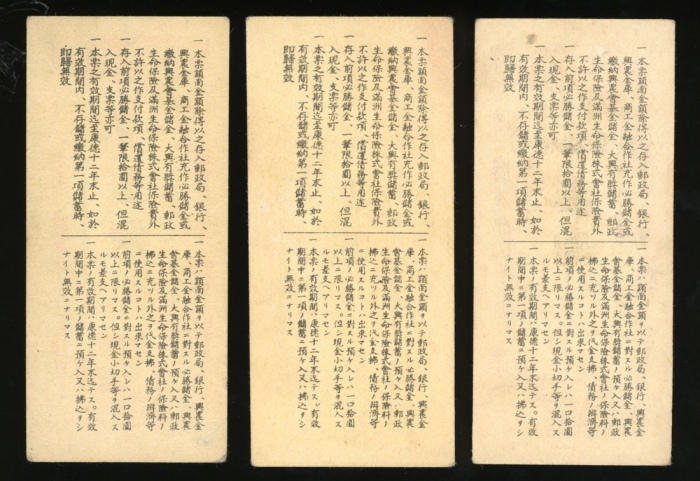 一 本票額面金額除得以之存入郵政局、銀行、
興農金庫、商工金融合作社充作必勝儲金或
繳納興農會基金儲金、大興有奬儲蓄、郵政
生命保險及滿洲生命保險株式會社保險費外
不許以之作支付款項、償還債務等用途
一 存入前項必勝儲金、一筆限拾圓以上、但混
入現金、支票等亦可
一 本票之有效期間迄至康德十二年末止、如於
有效期間内、不存儲或繳納第一項儲蓄時、
即歸無效
一 本票ハ額面金額ヲ以テ郵政局、銀行、興農金
庫、商工金融合作社ニ對スル必勝儲金、興農
會基金儲金、大興有奬儲蓄ノ預ケ入又ハ郵政
生命保險及滿洲生命保險株式會社ノ保險料ノ
拂込ニ充ツル外之ヲ代金支拂、債務ノ辨濟等
ニ使用スルコトハ出來マセン
一 前項ノ必勝儲金ニ對スル預ケ入レハ、一口拾圓
以上ニ限リマス。但シ現金小切手等ヲ混入ス
ルモ差支ヘアリマセン
一 本票ノ有效期間ハ康德十二年末迄テス。有效
期間中ニ第一項ノ儲蓄ニ預ケ入又ハ拂込ヲシ
ナイト無效ニナリマス
一 本票額面金額除得以之存入郵政局、銀行、
興農金庫、商工金融合作社充作必勝儲金或
繳納興農會基金儲金、大興有奬儲蓄、郵政
生命保險及滿洲生命保險株式會社保險費外
不許以之作支付款項、償還債務等用途
一 存入前項必勝儲金、一筆限拾圓以上、但混
入現金、支票等亦可
一 本票之有效期間迄至康德十二年末止、如於
有效期間内、不存儲或繳納第一項儲蓄時、
即歸無效
一 本票ハ額面金額ヲ以テ郵政局、銀行、興農金
庫、商工金融合作社ニ對スル必勝儲金、興農
會基金儲金、大興有奬儲蓄ノ預ケ入又ハ郵政
生命保險及滿洲生命保險株式會社ノ保險料ノ
拂込ニ充ツル外之ヲ代金支拂、債務ノ辨濟等
ニ使用スルコトハ出來マセン
一 前項ノ必勝儲金ニ對スル預ケ入レハ、一口拾圓
以上ニ限リマス。但シ現金小切手等ヲ混入ス
ルモ差支ヘアリマセン
一 本票ノ有效期間ハ康德十二年末迄テス。有效
期間中ニ第一項ノ儲蓄ニ預ケ入又ハ拂込ヲシ
ナイト無效ニナリマス
一 本票額面金額除得以之存入郵政局、銀行、
興農金庫、商工金融合作社充作必勝儲金或
繳納興農會基金儲金、大興有奬儲蓄、郵政
生命保險及滿洲生命保險株式會社保險費外
不許以之作支付款項、償還債務等用途
一 存入前項必勝儲金、一筆限拾圓以上、但混
入現金、支票等亦可
一 本票之有效期間迄至康德十二年末止、如於
有效期間内、不存儲或繳納第一項儲蓄時、
即歸無效
一 本票ハ額面金額ヲ以テ郵政局、銀行、興農金
庫、商工金融合作社ニ對スル必勝儲金、興農
會基金儲金、大興有奬儲蓄ノ預ケ入又ハ郵政
生命保險及滿洲生命保險株式會社ノ保險料ノ
拂込ニ充ツル外之ヲ代金支拂、債務ノ辨濟等
ニ使用スルコトハ出來マセン
一 前項ノ必勝儲金ニ對スル預ケ入レハ、一口拾圓
以上ニ限リマス。但シ現金小切手等ヲ混入ス
ルモ差支ヘアリマセン
一 本票ノ有效期間ハ康德十二年末迄テス。有效
期間中ニ第一項ノ儲蓄ニ預ケ入又ハ拂込ヲシ
ナイト無效ニナリマス